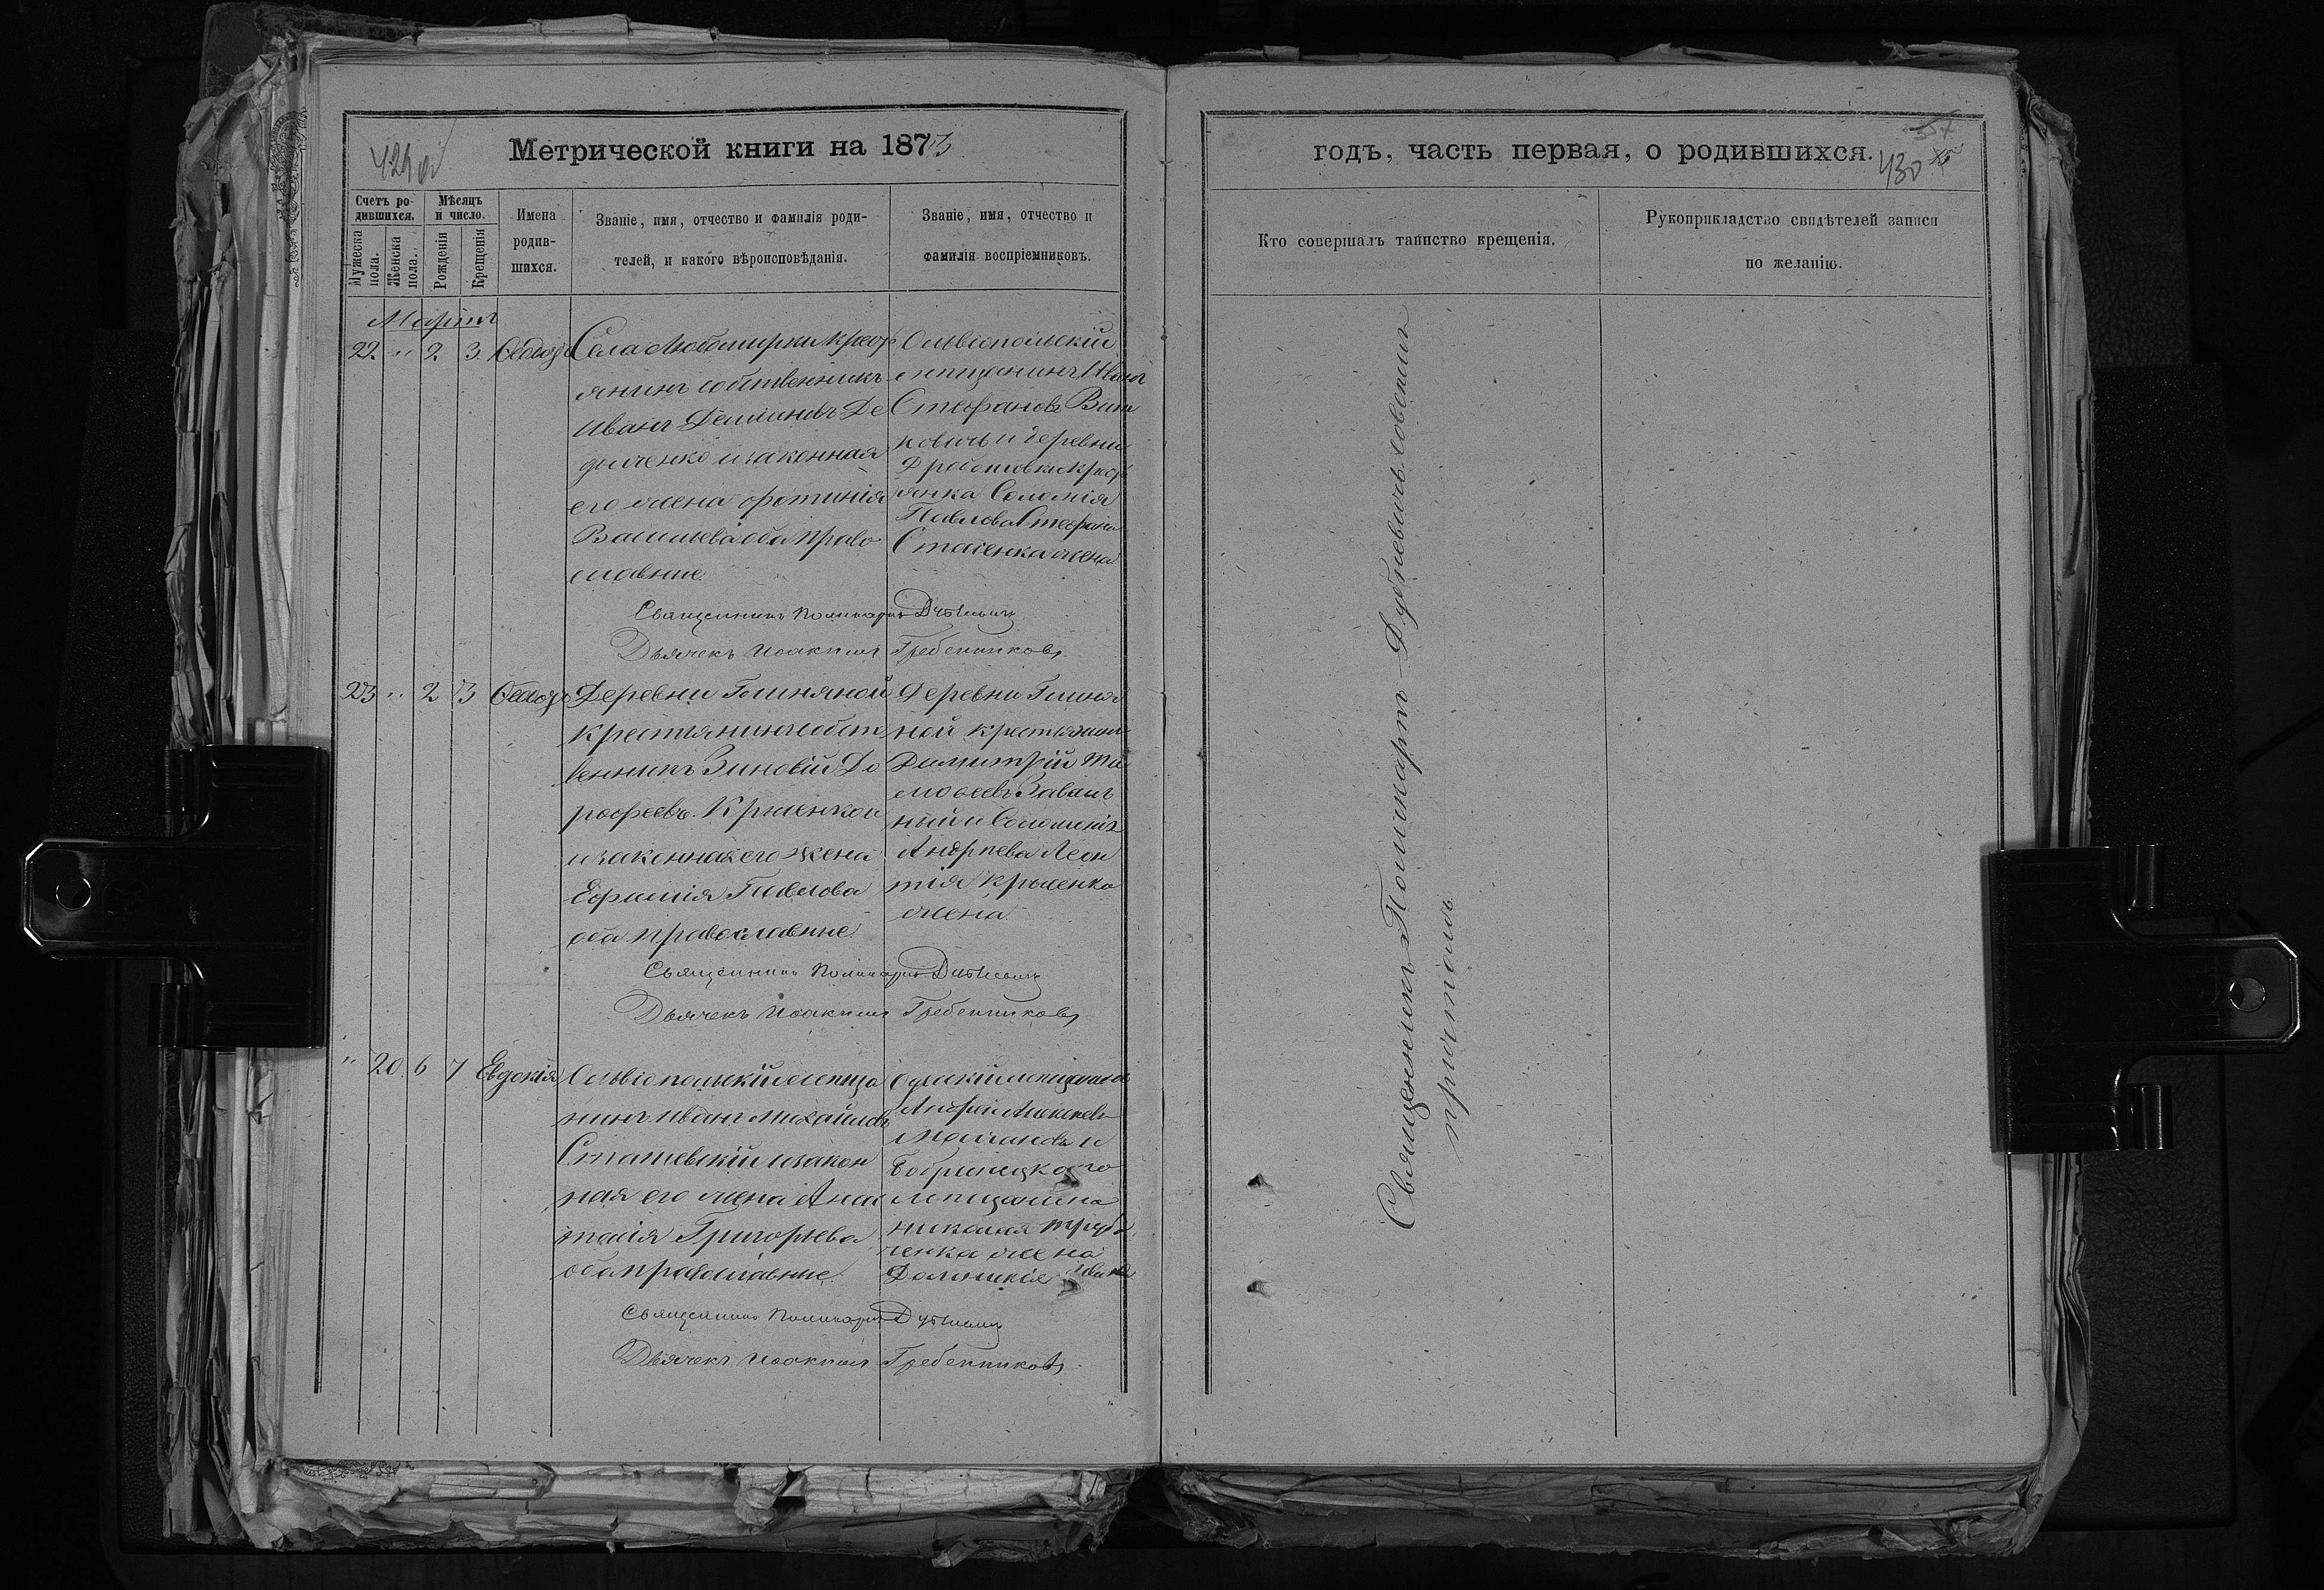 429 об
Метрической книги на 1873
Счетъ ро-
дившихся.
Мѣсяцъ
и число.
Мужеска
пола.
Женска
пола.
Рожденія
Крещенія
Имена
родив-
шихся.
Званіе, имя, отчество и фамилія роди-
телей, и какого вѣроисповѣданія.
Званіе, имя, отчество и
фамилія воспріемниковъ.
Мартъ
22 " 2 3 Ѳеодоръ
Села Любомирки крест
янинъ собственникъ
Иванъ Деміановъ
и законная
его жена Фотинія
Васильева оба право
славные.
Ольвіопольскій
мещанинъ Иванъ
Стефановъ Вит
ковичь и деревни
крест
янка Соломія
Павлова Стефана
жена
Священникъ Поликарпъ Дубневичъ
Дьячекъ Иоакимъ Гребенниковъ
23 " 2 3 Ѳеодоръ
Деревни Глиняной
крестьянинъ собст
венникъ Зиновій До
рофеевъ Крыленко
и законная его жена
Ефимія Павлова
оба православные.
Деревни Глиня
ной крестьянинъ
Димитрій Ти
моѳеевъ
и Соломонія
Андреева Леон
тія Крыленка
жена.
Священникъ Поликарпъ Дубневичъ
Дьячекъ Иоакимъ Гребенниковъ
" 20 6 7 Евдокія
Ольвіопольскій меща
нинъ Иванъ Михайловъ
Сташевскій и закон
ная его жена Анас
тасія Григорьева
оба православные.
Одесскій мещанинъ
Андрей Алексѣевъ
и
Бобринецкаго
мещанина
Николая Труб
ченка жена
Домникія
Священникъ Поликарпъ Дубневичъ
Дьячекъ Иоакимъ Гребенниковъ
годъ, часть первая, о родившихся.
430
Кто совершалъ таинство крещенія.
Рукоприкладство свидѣтелей записи
по желанію.
Священникъ Поликарпъ Дубневичъ совершилъ
причтомъ